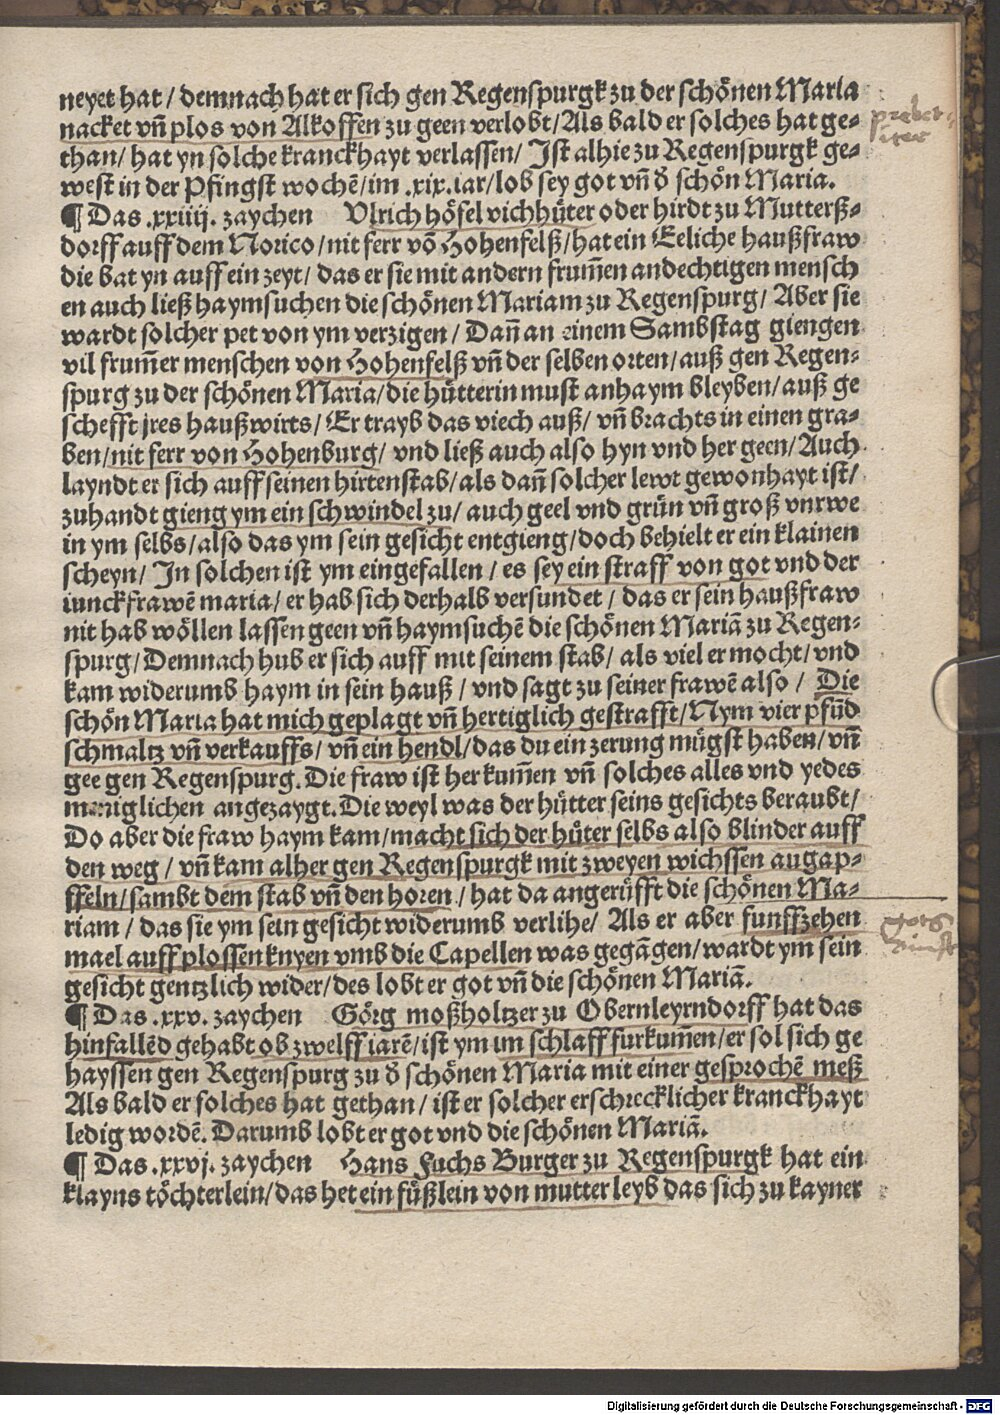 neyet hat / demnach hat er sich gen Regenspurgk zu der schönen Maria
nacket vñ plos von Alkoffen zu geen verlobt / Als bald er solches hat ge-
than / hat yn solche kranckhayt verlassen / Ist alhie zu Regenspurgk ge-
west in der Pfingst wochē / im .xix. iar / lob sey got vñ ð schön Maria.
¶ Das .xxiiij. zaychen Vlrich hösel vichhüter oder hirdt zu Mutterß-
dorff auff dem Norico / nit ferr vō Hohenfelß / hat ein Eeliche haußfraw
die bat yn auff ein zeyt / das er sie mit andern frum̄en andechtigen mensch
en auch ließ haymsuchen die schönen Mariam zu Regenspurg / Aber sie
wardt solcher pet von ym verzigen / Dañ an einem Sambstag giengen
vil frum̄er menschen von Hohenfelß vñ der selben orten / auß gen Regen-
spurg zu der schönen Maria / die hütterin must anhaym bleyben / auß ge
schefft jres haußwirts / Er trayb das viech auß / vñ brachts in einen gra-
ben / nit ferr von Hohenburg / vnd ließ auch also hyn vnd her geen / Auch
layndt er sich auff seinen hirtenstab / als dañ solcher lewt gewonhayt ist /
zuhandt gieng ym ein schwindel zu / auch geel vnd grün vñ groß vnrwe
in ym selbs / also das ym sein gesicht entgieng / doch behielt er ein klainen
scheyn / In solchen ist ym eingefallen / es sey ein straff von got vnd der
iunckfrawē maria / er hab sich derhalb versundet / das er sein haußfraw
nit hab wöllen lassen geen vñ haymsuchē die schönen Mariā zu Regen-
spurg / Demnach hub er sich auff mit seinem stab / als viel er mocht / vnd
kam widerumb haym in sein hauß / vnd sagt zu seiner frawē also / Die
schön Maria hat mich geplagt vñ hertiglich gestrafft / Nym vier pfūd
schmaltz vñ verkauffs / vñ ein hendl / das du ein zerung mügst haben / vñ
gee gen Regenspurg. Die fraw ist her kum̄en vñ solches alles vnd yedes
meniglichen angezaygt. Die weyl was der hütter seins gesichts beraubt /
Do aber die fraw haym kam / macht sich der hüter selbs also blinder auff
den weg / vñ kam alher gen Regenspurgk mit zweyen wichssen augap-
ffeln / sambt dem stab vñ den horen / hat da angerüfft die schönen Ma-
riam / das sie ym sein gesicht widerumb verlihe / Als er aber funffzehen
mael auff plossen knyen vmb die Capellen was gegāgen / wardt ym sein
gesicht gentzlich wider / des lobt er got vñ die schönen Mariā.
¶ Das .xxv. zaychen Görg moßholtzer zu Obernleyrndorff hat das
hinfallēd gehabt ob zwelff iarē / ist ym im schlaff furkum̄en / er sol sich ge
hayssen gen Regenspurg zu ð schönen Maria mit einer gesprochē meß
Als bald er solches hat gethan / ist er solcher erschrecklicher kranckhayt
ledig wordē. Darumb lobt er got vnd die schönen Mariā.
¶ Das .xxvj. zaychen Hans Fuchs Burger zu Regenspurgk hat ein
klayns töchterlein / das het ein füßlein von mutter leyb das sich zu kayner
Digitalisierung gefördert durch die Deutsche Forschungsgemeinschaft - DFG